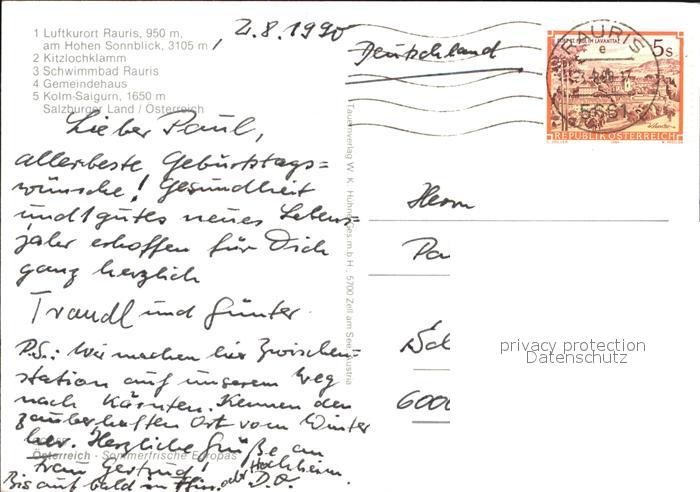 1 Luftkurort Rauris, 950 m,
am Hohen Sonnblick, 3105 m
2 Kitzlochklamm
3 Schwimmbad Rauris
4 Gemeindehaus
5 Kolm-Saigurn, 1650 m
Salzburger Land / Österreich
2.8.1990
Lieber Paul,
allerbeste Geburtstags=
wünsche! Gesundheit
und 1 gutes neues Lebens=
jahr erhoffen für Dich
ganz herzlich
Traudl und Günter.
P.S.: Wir machen hier Zwischen-
station auf unserem Weg
nach Kärnten. Kennen den
zauberhaften Ort vom Winter
her. Herzliche Grüße an
Österreich - Sommerfrische Europas
Frau Gertrud!
Bis auf bald in oder Hochheim.
D.O.
Tauernverlag W. K. Huber, Ges.m.b.H., 5700 Zell am See, Austria
Deutschland
RAURIS
e
5661
5s
STIFT ST. PAUL IM LAVANTTAL
REPUBLIK ÖSTERREICH
Herrn
Pa
6000
privacy protection
Datenschutz